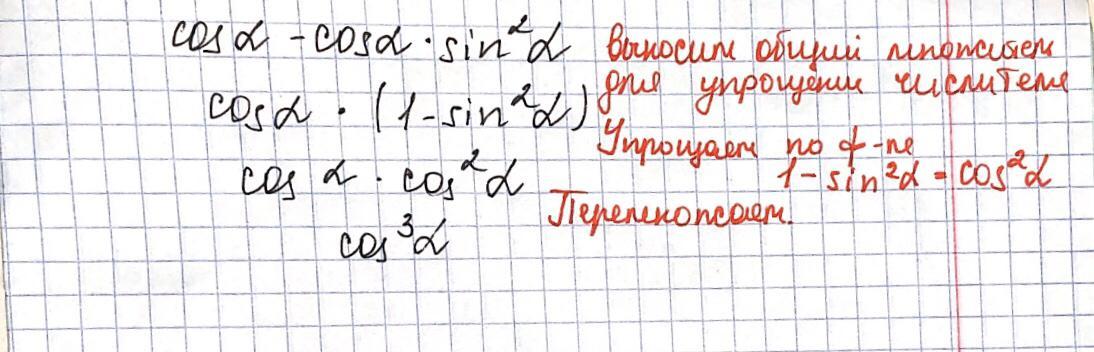 cosα - cosα · sin²α выносим общий множитем
для упрощени числителя
cosα · (1-sin²α)
Упрощаем по ф-ле
1-sin²α = cos²α
cos α · cos²α
Перемножаем.
cos³α